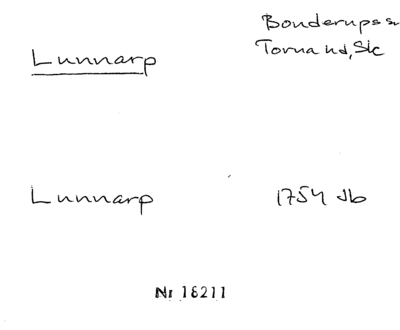 Lunnarp
Bonderups sn
Torna hd, Sk
Lunnarp
1754 Jb
Nr 18211